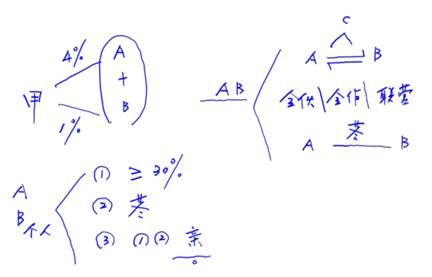 4%
甲
1%
A
+
B
A B
C
A B
合伙 | 合作 | 联营
董
A B
A
B 个人
① ≥ 30%
② 董
③ ①② 亲